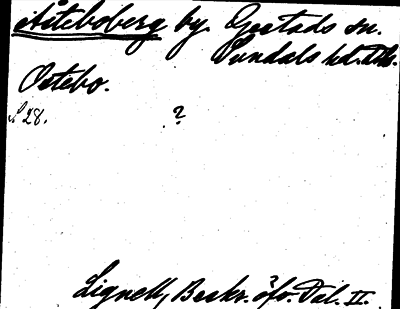 Åsteboberg by. Gestads sn.
Sundals hd. Älvs.
Ostebo.
s. 28. ?
Lignell, Beskr. öfv. Dal. II.